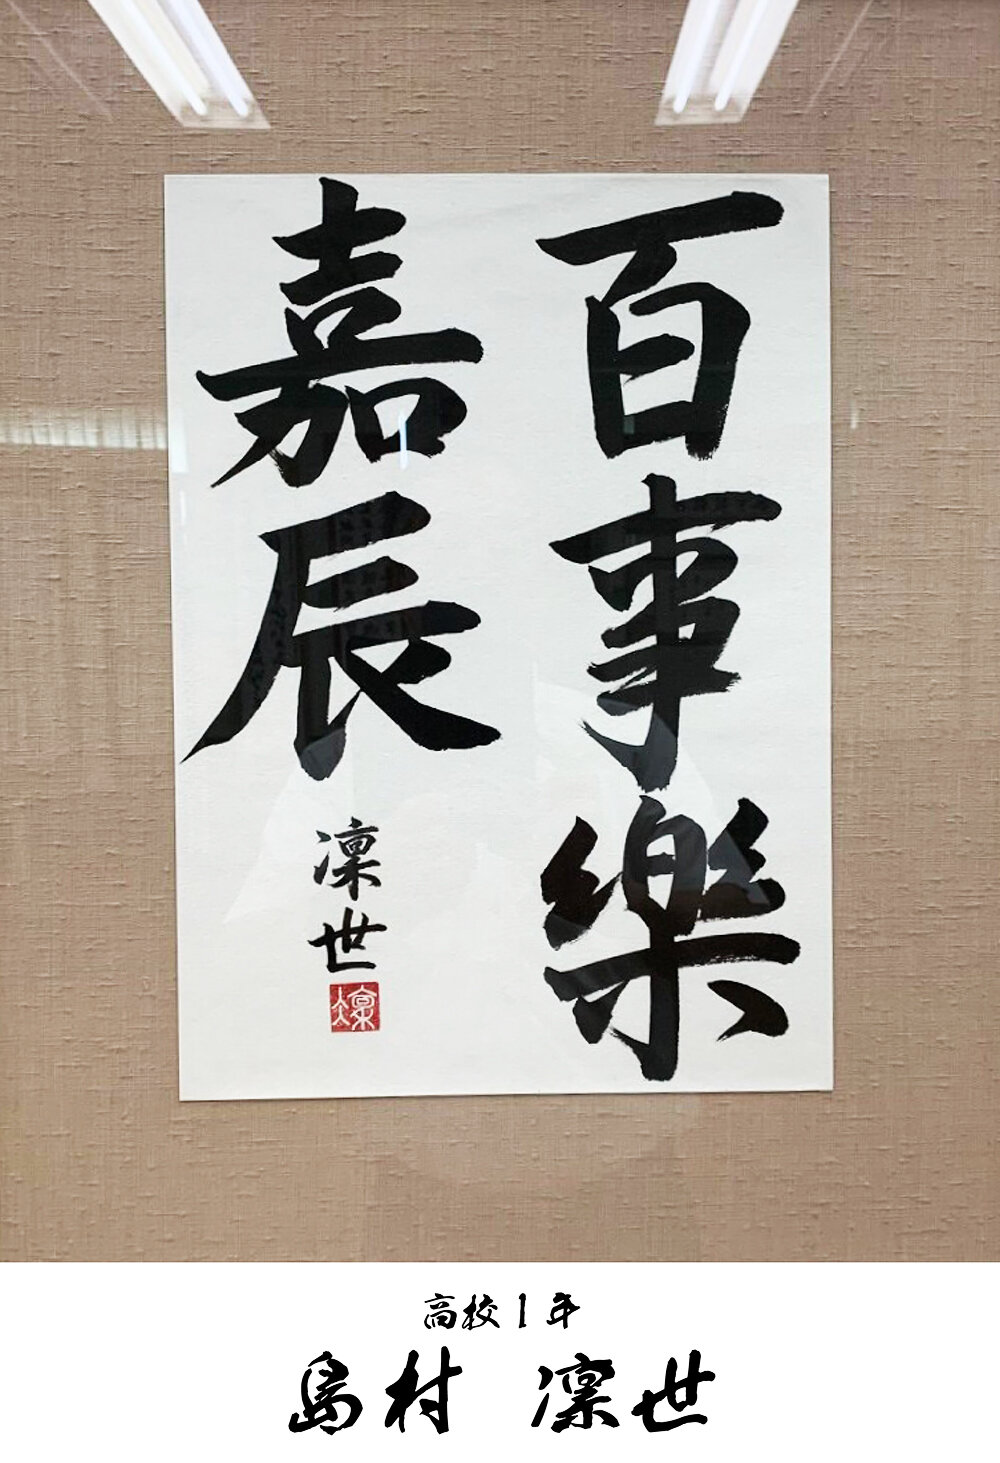 百事樂
嘉辰
凛世
高校1年
島村 凛世